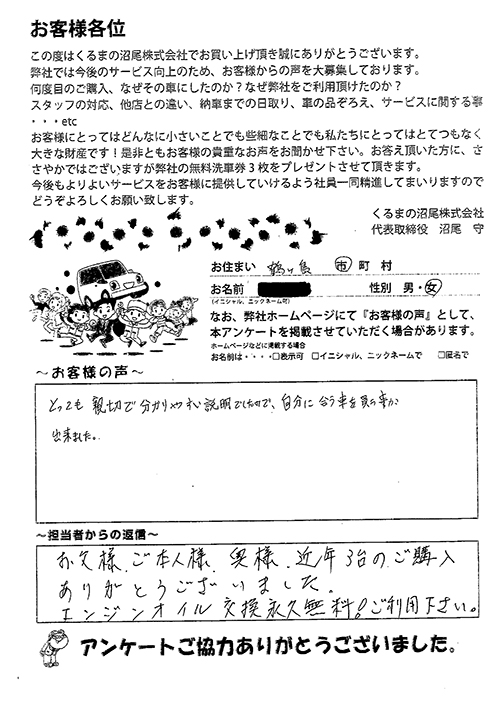 お客様各位
この度はくるまの沼尾株式会社でお買い上げ頂き誠にありがとうございます。
弊社では今後のサービス向上のため、お客様からの声を大募集しております。
何度目のご購入、なぜその車にしたのか？なぜ弊社をご利用頂けたのか？
スタッフの対応、他店との違い、納車までの日取り、車の品ぞろえ、サービスに関する事
・・・etc
お客様にとってはどんなに小さいことでも些細なことでも私たちにとってはとてつもなく
大きな財産です！是非ともお客様の貴重なお声をお聞かせ下さい。お答え頂いた方に、さ
さやかではございますが弊社の無料洗車券３枚をプレゼントさせて頂きます。
今後もよりよいサービスをお客様に提供していけるよう社員一同精進してまいりますので
どうぞよろしくお願い致します。
くるまの沼尾株式会社
代表取締役　沼尾　守
お住まい　鶴ヶ島　市 町 村
お名前　性別　男・女
(イニシャル、ニックネーム可)
なお、弊社ホームページにて『お客様の声』として、
本アンケートを掲載させていただく場合があります。
ホームページなどに掲載する場合
お名前は・・・・□表示可　□イニシャル、ニックネームで　□匿名で
～お客様の声～
とっても 親切で分かりやすい説明でしたので、自分に合う車を買う事が
出来ました。
～担当者からの返信～
お父様、ご本人様、奥様、近年3台のご購入
ありがとうございました。
エンジンオイル交換永久無料！ご利用下さい。
アンケートご協力ありがとうございました。